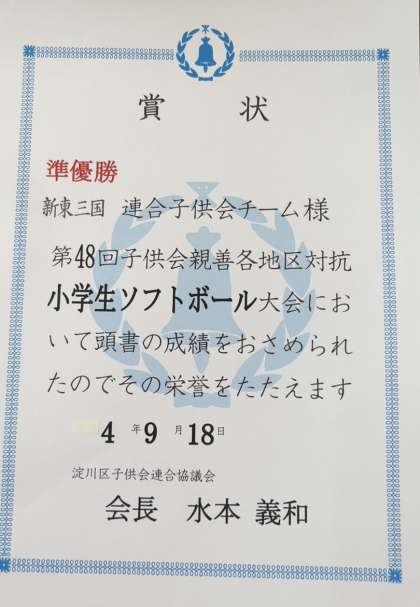 賞状
準優勝
新東三国 連合子供会チーム様
第48回子供会親善各地区対抗
小学生ソフトボール大会にお
いて頭書の成績をおさめられ
たのでその栄誉をたたえます
4年9月18日
淀川区子供会連合協議会
会長 水本 義和